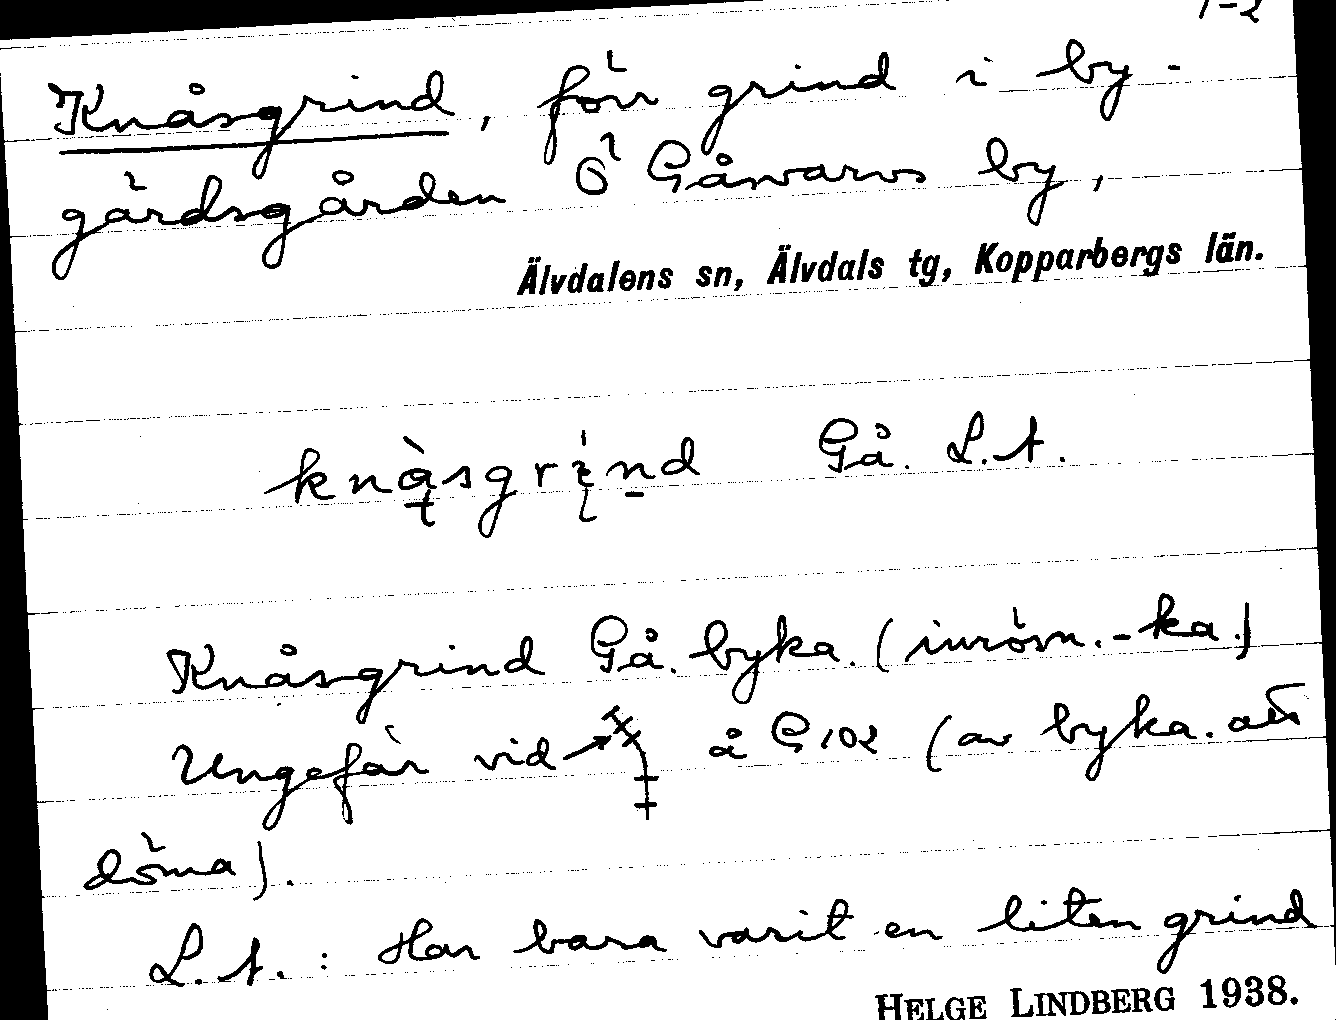 1-2
Knåsgrind, förr grind i by-
gärdsgården Ö Gåsvarvs by,
Älvdalens sn, Älvdals tg, Kopparbergs län.
Gå. L.A.
Knåsgrind Gå. byka. (inrösn.-ka.)
Ungefär vid å G 102 (av byka. att
döma).
L.A.: Har bara varit en liten grind
HELGE LINDBERG 1938.